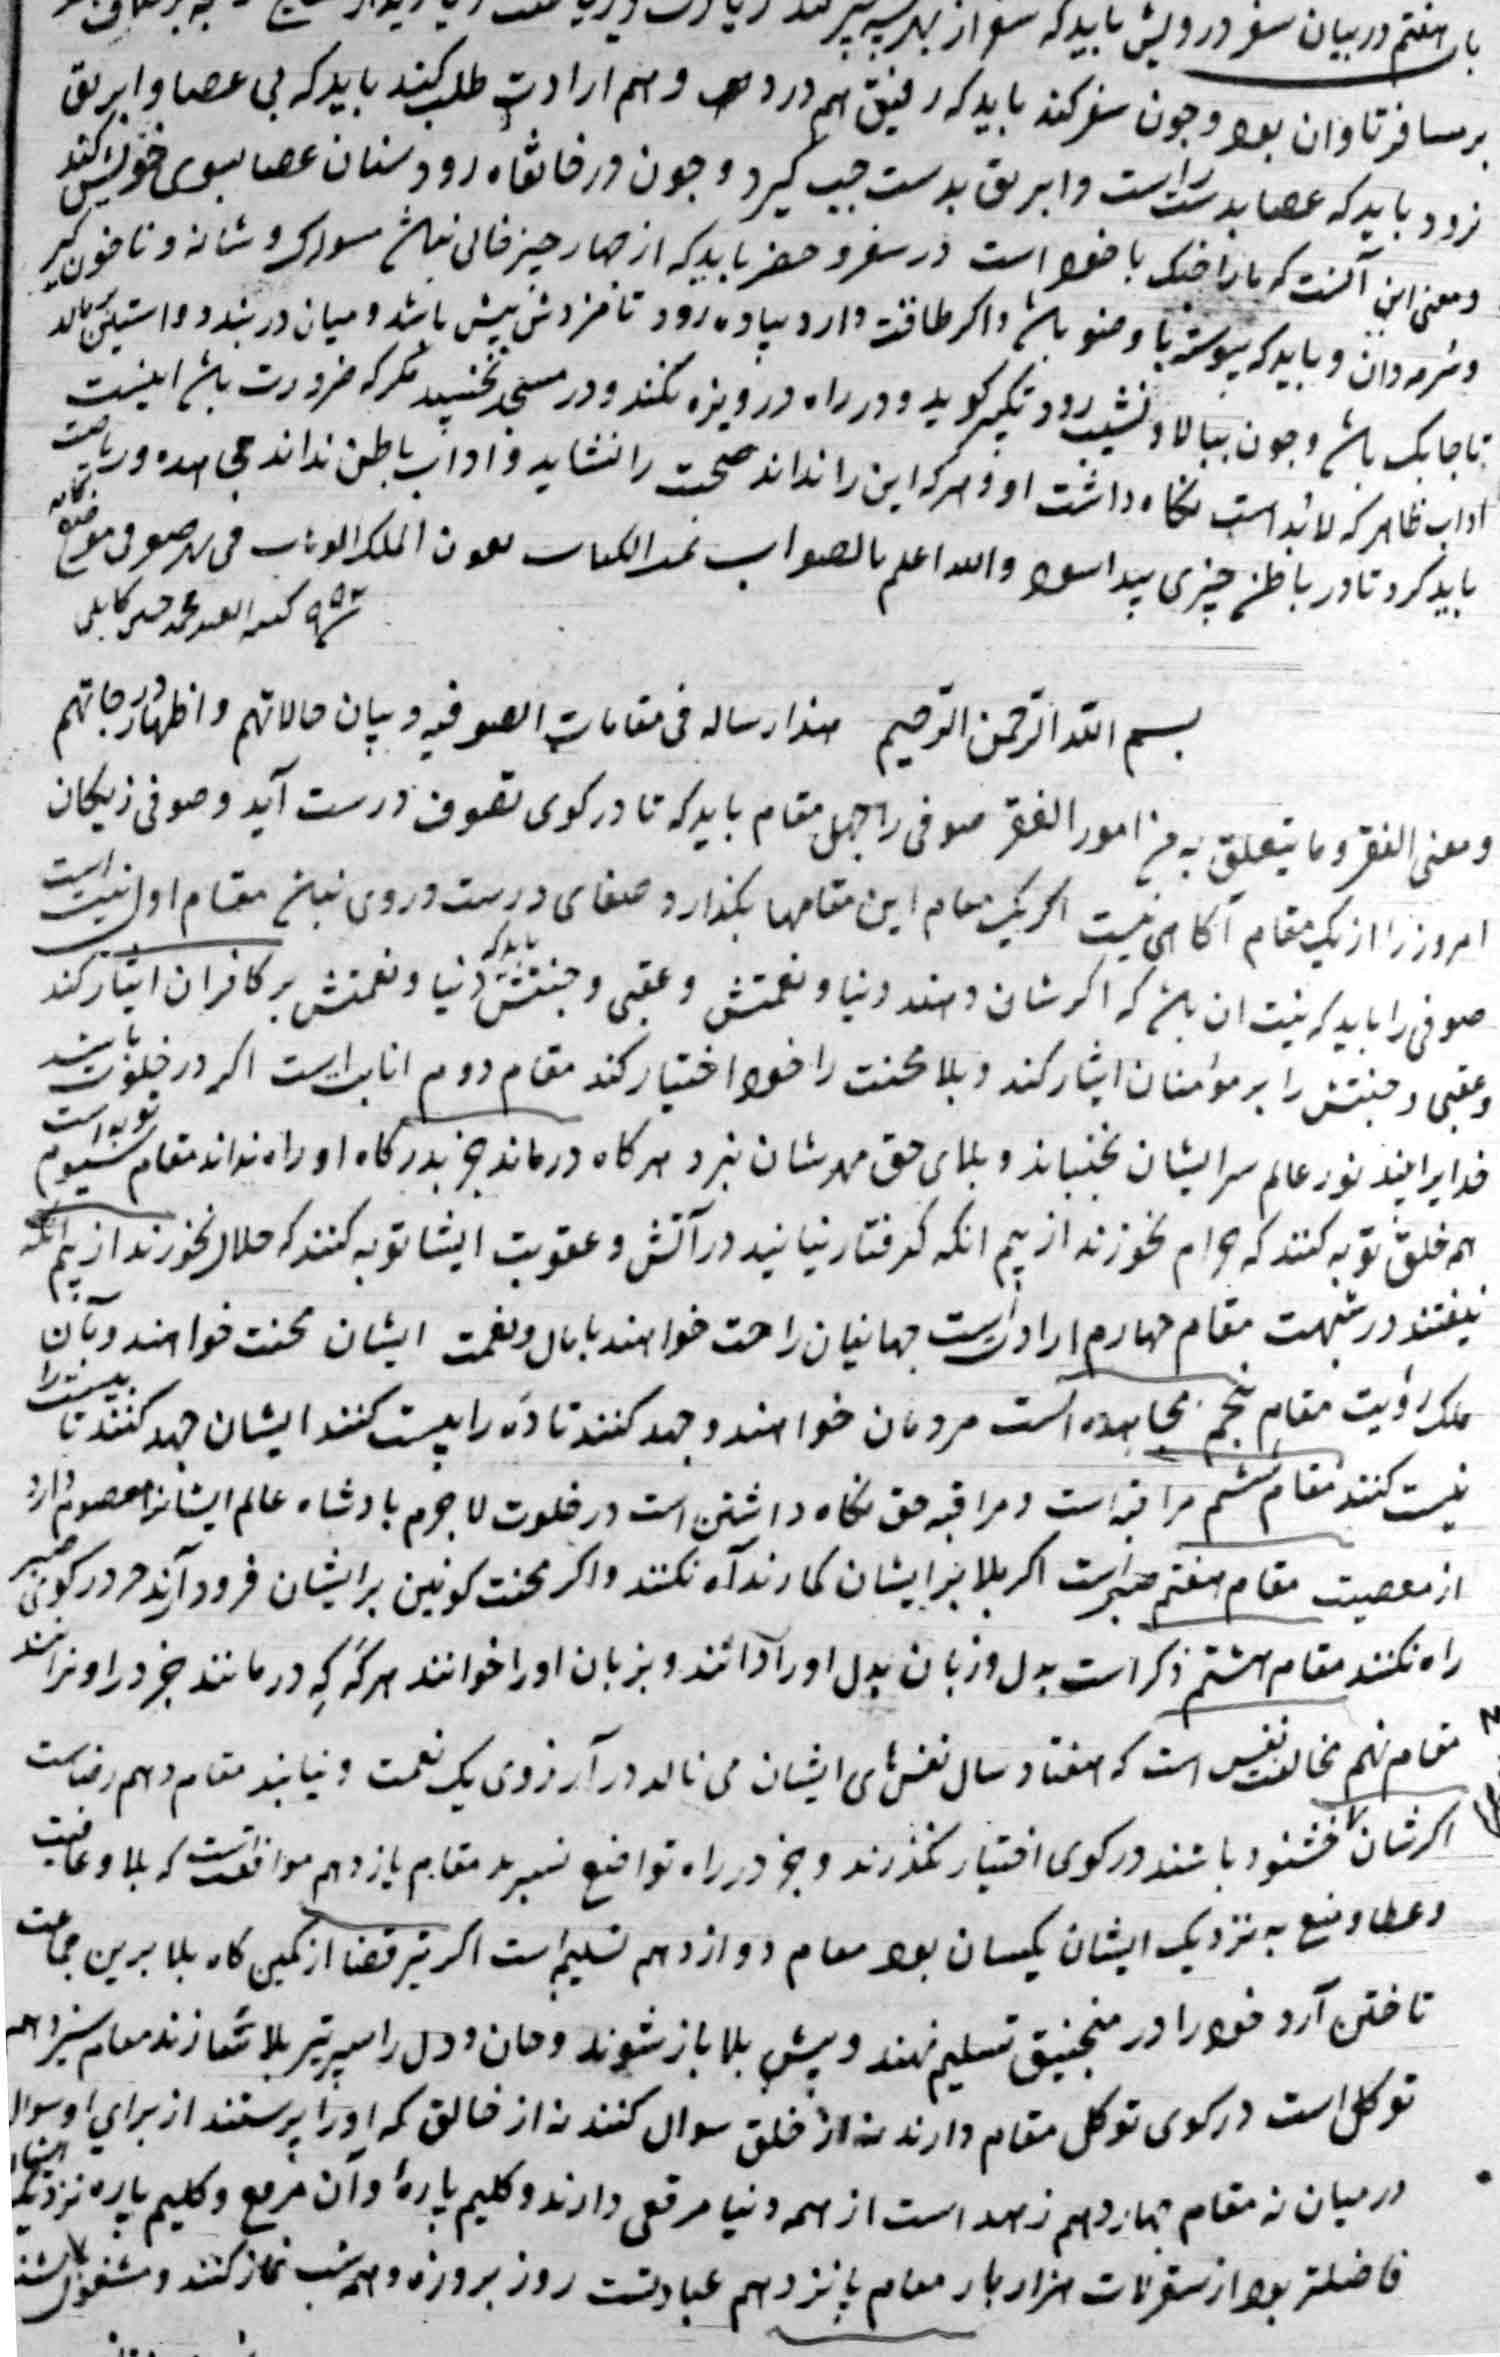 باب هفتم در بیان سفر درویش باید که سفر از بهر
بر مسافر تاوان بود و چون سفر کند باید که رفیق هم درد و هم ارادت طلب کند باید که بی عصا و ابریق
نرود باید که عصا بدست راست و ابریق بدست چپ گیرد و چون در خانقاه رود سنان عصا بسوی خویش کند
و معنی این آنست که ما را جنک با خود است در سفر و حضر باید که از چهار چیز خالی نباشد مسواک و شانه و ناخون گیر
و سرمه دان و باید که پیوسته با وضو باشد و اکر طاقت دارد پیاده رود تا مزدش بیش باشد و میان در بندد و استین بمالد
تا چابک باشد و چون ببالا و نشیب رود تکبیر کوید و در راه درویزه نکند و در مسجد نخسپد مکر که ضرورت باشد اینست
اداب ظاهر که لابد است نکاه داشت او و هر که این را نداند صحبت را نشاید و اداب باطن نداند مجاهده و ریاضت
باید کرد تا در باطن چیزی پیدا شود والله اعلم بالصواب تمت الکتاب بعون الملک الوهاب فی
۹۵۳ کتبه العبد محمد حسن کابلی
بسم الله الرحمن الرحیم هذا رساله فی مقامات الصوفیه و بیان حالاتهم و اظهار درجاتهم
و معنی الفقر و ما یتعلق به من امور الفقر صوفی را چهل مقام باید که تا در کوی تصوف درست آید و صوفی زیکان
امروز را از یک مقام آکاهی نیست اکر یک مقام این مقامها بکذارد صفای درست در وی نباشد مقام اول نیت است
صوفی را باید که نیت ان باشد که اکر شان دهند دنیا و نعمتش و عقبی و جنتش باید که دنیا و نعمتش بر کافران ایثار کند
و عقبی و جنتش را بر مؤمنان ایثار کند و بلا محنت را خود اختیار کند مقام دوم انابت است اکر در خلوت باشند
خدایرا بیند نور عالم سر ایشان نجنباند و بلای حق مهر شان نبرد هر کاه درماند جز بدرکاه او راه نداند مقام سیوم توبه است
همه خلق توبه کنند که حرام نخورند از بیم انکه کرفتار نیایند در آتش و عقوبت ایشان توبه کنند که حلال نخورند از بیم آنکه
نیفتند در شبهت مقام چهارم ارادت است جهانیان راحت خواهند با مال و نعمت ایشان محنت خواهند و بآن
ملک رؤیت مقام پنجم مجاهده است مردمان خواهند و جهد کنند تا ده را بیست کنند ایشان جهد کنند تا بیست را
نیست کنند مقام ششم مراقبه است و مراقبه حق نکاه داشتن است در خلوت لاجرم پادشاه عالم ایشانرا معصوم دارد
از معصیت مقام هفتم صبر است اکر بلا بر ایشان کمارند آه نکنند و اکر محنت کونین بر ایشان فرود آید جز در کوی صبر
راه نکنند مقام هشتم ذکر است بدل و زبان بدل او را دانند و بزبان او را خوانند هر کَه که درمانند جز در او ندانند
مقام نهم مخالفت نفس است که هفتاد سال نفس های ایشان می نالد در آرزوی یک نعمت و نیابند مقام دهم رضاست
اکر شان خشنود باشند در کوی اختیار نکذرند و جز در راه تواضع نسپرند مقام یازدهم موافقت است که بلا و عافیت
و عطا و منع به نزدیک ایشان یکسان بود مقام دوازدهم تسلیم است اکر تیر قضا از کمین کاه بلا برین جماعت
تاختن آرد خود را در منجنیق تسلیم نهند و پیش بلا باز شوند و جان و دل را سپر تیر بلا سازند مقام سیزدهم
توکل است در کوی توکل مقام دارند نه از خلق سوال کنند نه از خالق که او را پرستند از برای او سوال
در میان نه مقام چهاردهم زهد است از همه دنیا مرقعی دارند و کلیم پارهٔ و آن مرقع و کلیم پاره نزدیک ایشان
فاضلتر بود از سقرلات هزار بار مقام پانزدهم عبادتست روز بروزه و همه شب نماز کنند و مشغول باشند